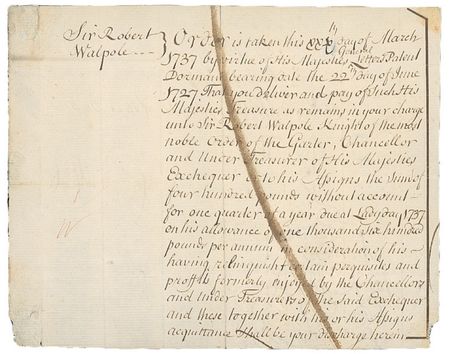 Sir Robert
Walpole
Order is taken this xxxth day of March
1737 by virtue of His Majesties General Letters Patent
Dormant bearing date the 22th day of June
1727 That you deliver and pay of such His
Majesties Treasure as remains in your charge
unto Sir Robert Walpole Knight of the most
noble Order of the Garter, Chancellor
and Under Treasurer of His Majesties
Exchequer or to his Assigns the Sum of
four hundred pounds without account
for one quarter of a year due at Ladyday 1737
on his allowance of one thousand six hundred
pounds per annum in consideration of his
having relinquisht certain perquisites and
profits formerly enjoyed by the Chancellors
and Under Treasurers of the said Exchequer
and these together with his or his Assigns
acquittance shall be your discharge herein